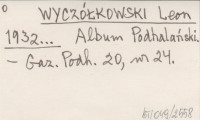 WYCZÓŁKOWSKI Leon
1932... Album Podhalański.
- Gaz. Podh. 20, nr 24.